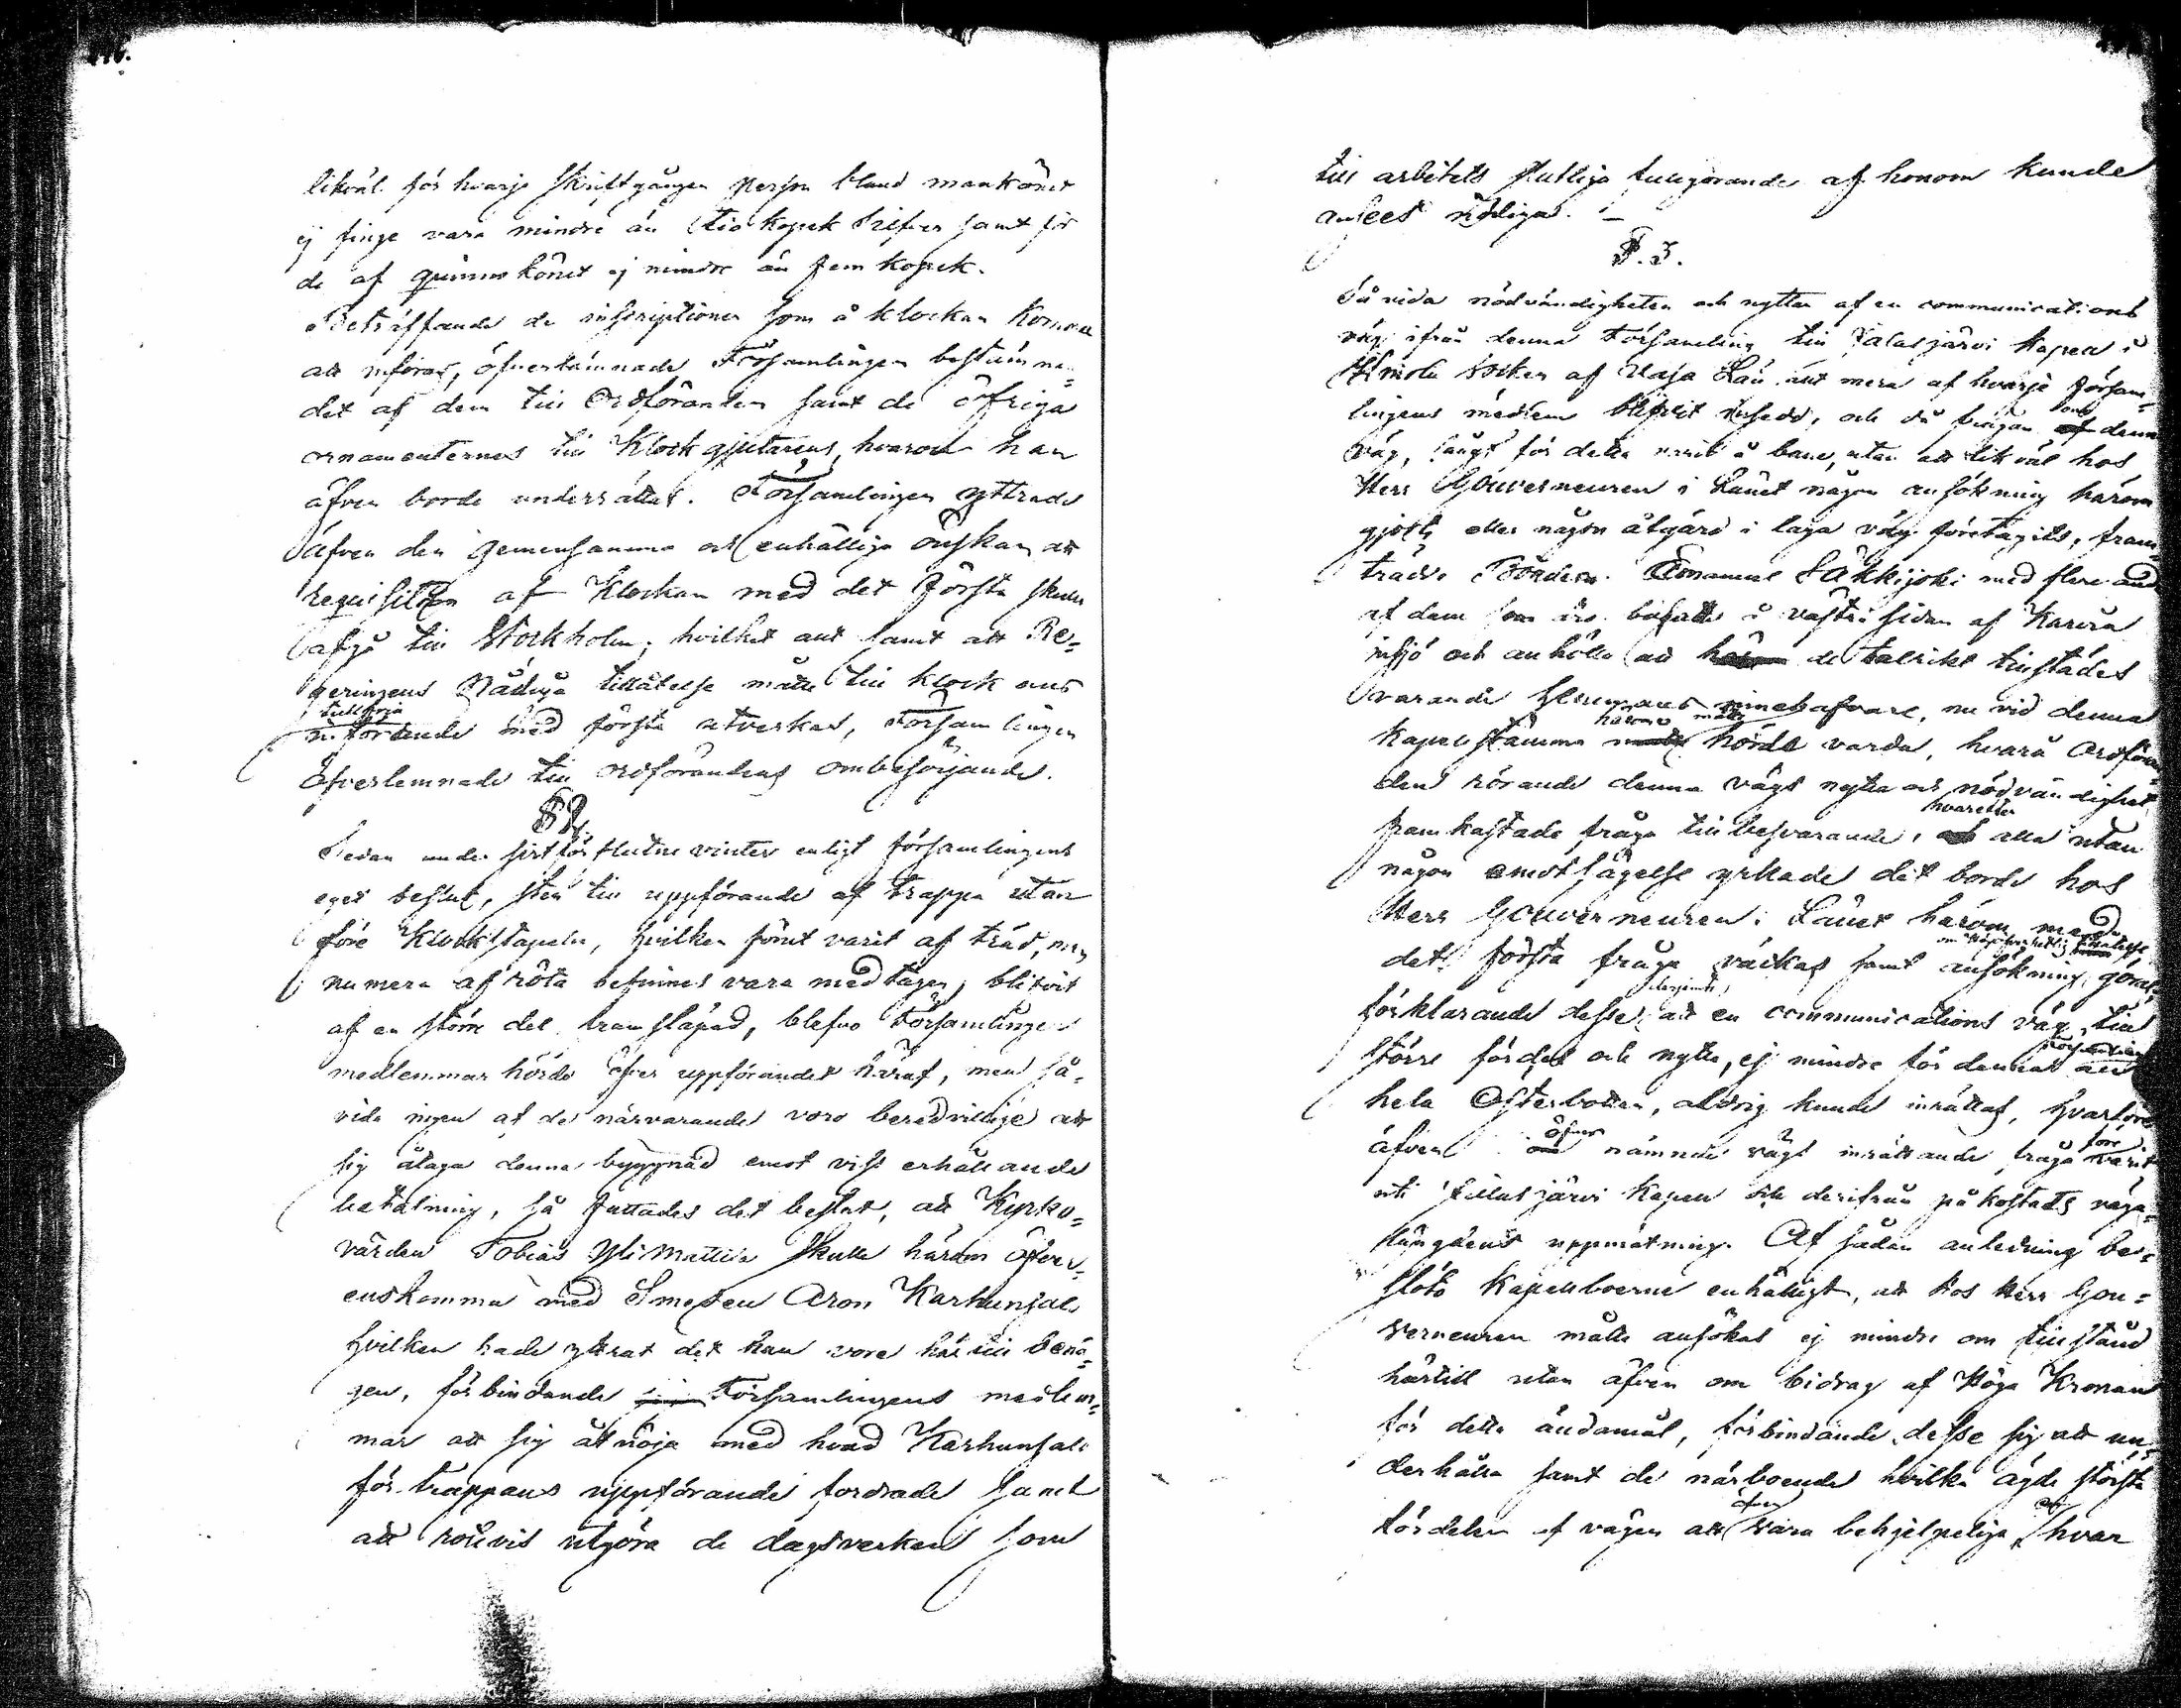 likväl för hvarje skriftgången person bland mankönet
ej finge vara mindre än tio kopek Silfver samt för
de af qvinnokönet ej mindre än fem kopek.
Beträffande de inscriptioner som å klockan komma
att införas, öfverlämnade Församlingen bestämman=
det af dem till Ordföranden samt de öfriga
ornamenternas till Klockgjutarens, hvarom han
äfven borde underrättas. Församlingen yttrade
äfven den gemensamma och enhälliga önskan att
requisition af Klockan med det första skulle
afgå till Stockholm; hvilket allt samt att Re=
geringens Nådiga tillåtelse måtte till klockans
införande med första utverkas, Församlingen
öfverlemnade till ordförandens ombesörjande.
§ 2.
Sedan under sistförflutne vinter enligt församlingens
eget beslut, sten till uppförande af trappa utan
före Klockstapeln, hvilken förut varit af träd, men
numera af röta befinnes vara medtagen, blifvit
af en större del framsläpad, blefvo Församlingens
medlemmar hörde öfver uppförandet häraf, men så=
vida ingen af de närvarande voro beredvillige att
sig åtaga denna byggnad emot visst erhållande
betalning, så fattades det beslut, att Kyrko=
värden Tobias Ylimattila skulle härom öfver=
enskomma med Smeden Aron Karhunsalo
hvilken hade yttrat det han vore härtill benä=
gen, förbindande Församlingens medlem=
mar att sig åtnöja med hvad Karhunsalo
för trappans uppförande fordrade samt
att rotevis utgöra de dagsverken som
till arbetets slutliga fullgörande af honom kunde
anses nödiga. —
§. 3.
Så vida nödvändigheten och nyttan af en communications
väg ifrån denna Församling till Jalasjärvi Kapell i
Ilmola Socken af Vasa Län allt mera af hvarje Försam=
lingens medlem blifvit insedd, och då frågan om denna
väg, långt för detta varit å bane, utan att likväl hos
Herr Gouverneuren i Länet någon ansökning härom
gjorts eller någon åtgärd i laga väg företagits, fram=
trädde Bonden Emanuel Säkkijoki med flere andre
af dem som äro bosatte å vestra sidan af Karvia
insjö och anhöllo att de talrikt tillstädes
varande hemmans innehafvare, nu vid denna
Kapellstämma härom måtte hörde varda, hvarå Ordföran=
den rörande denna vägs nytta och nödvändighet
framkastade fråga till besvarande, hvarefter alla utan
någon emotsägelse yrkade det borde hos
Herr Gouverneuren i Länet härom med
det första fråga väckas samt ansökning göras,
förklarande desse att en communications väg till
större fördel och nytta, ej mindre för denna Församling än
hela Österbotten, aldrig kunde inrättas, hvarföre
äfven öfver nämnde vägs inrättande fråga före varit
uti Jalasjärvi Kapell och derifrån påkostats väga=
sträckans uppmätning. Af sådan anledning be=
slöto Kapellboerne enhälligt, att hos Herr Gou=
verneuren måtte ansökas ej mindre om tillstånd
härtill utan äfven om bidrag af Höga Kronan
för detta ändamål, förbindande desse sig att un=
derhålla samt de närboende hvilka ägde största
fördelen af vägen att äfven vara behjelpelige, hvar